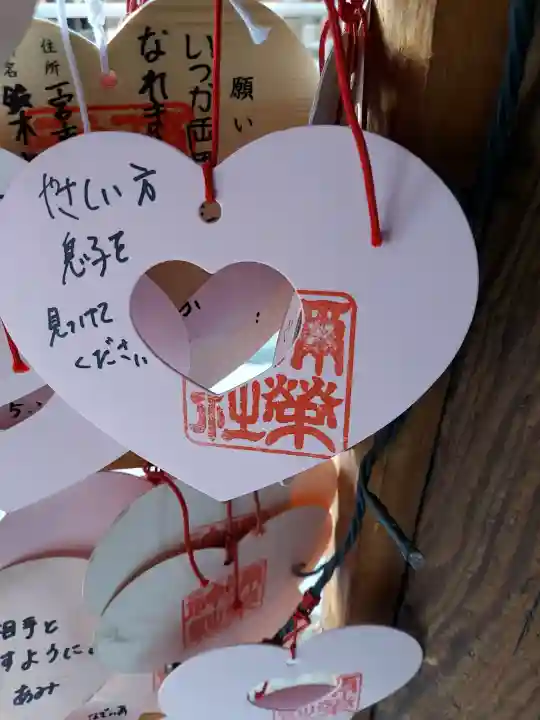 願い
いつか両
なれま
住所
名
やさしい方
息子を
見つけて
ください
か
爾榮之社
ら
相手と
すように。
あみ